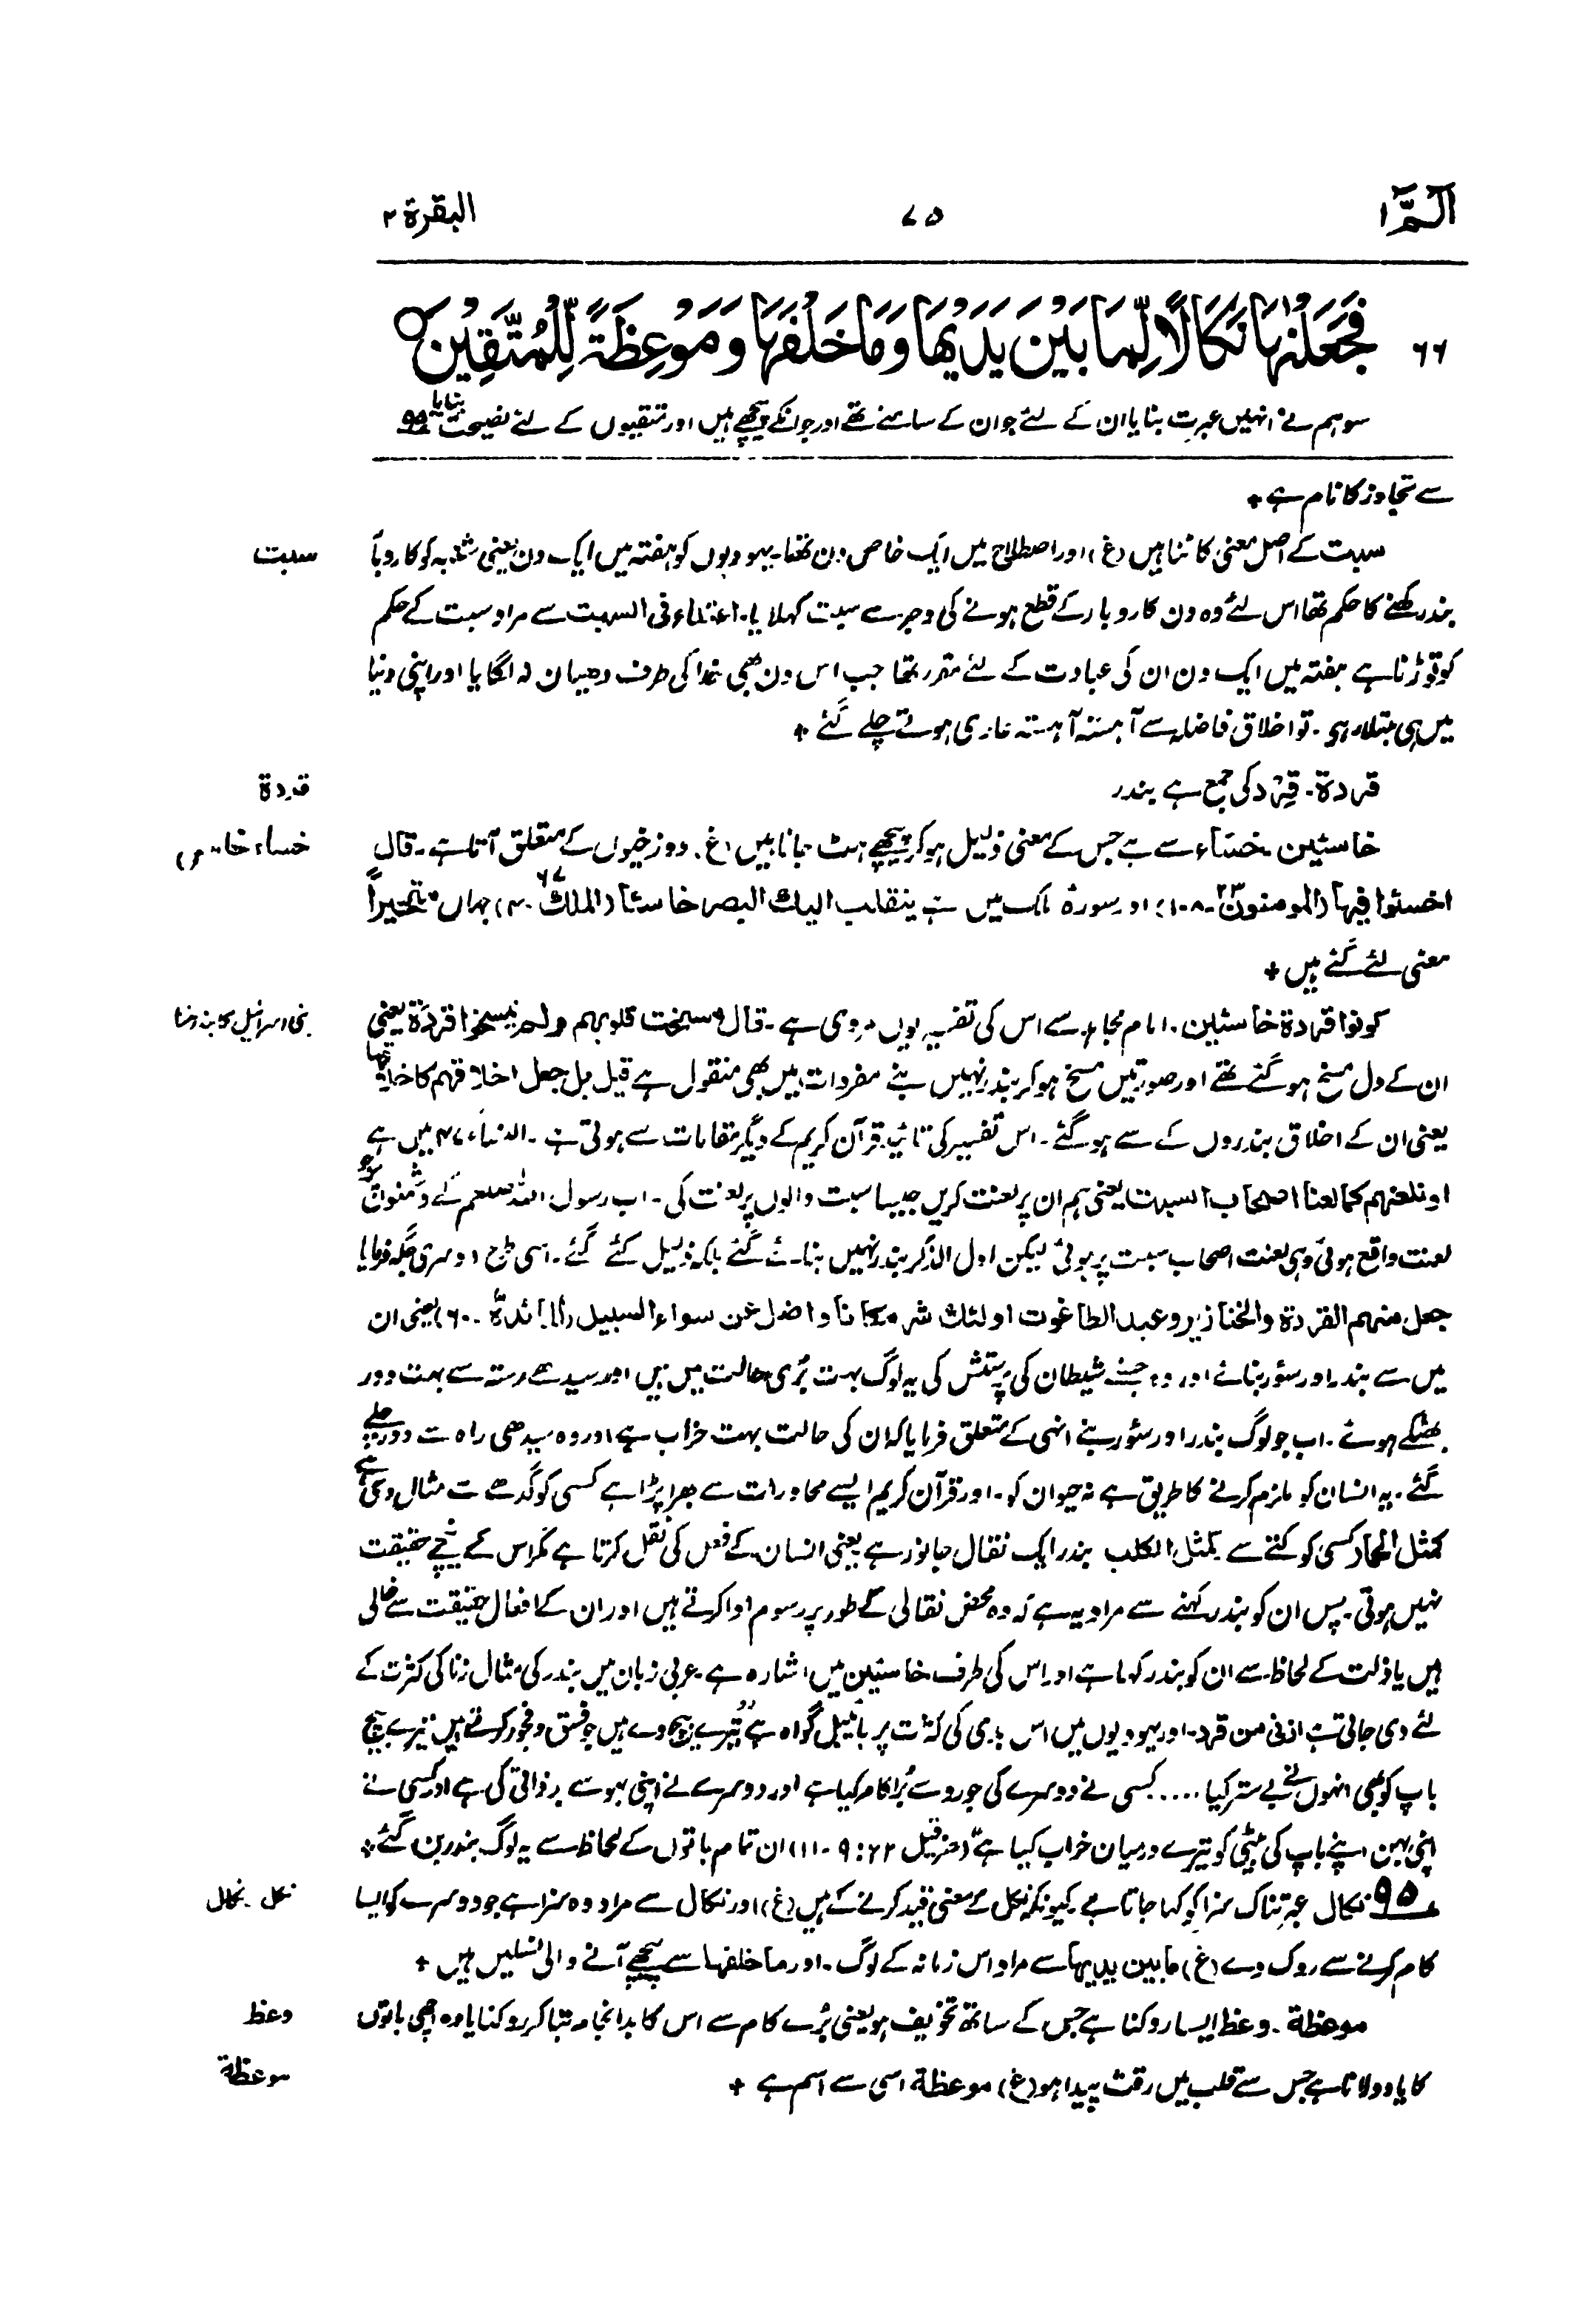 الٓمّٓ ١
٧٥
البقرة ٢
٦٦ فَجَعَلْنٰهَا نَكَالًا لِّمَا بَيْنَ يَدَيْهَا وَمَا خَلْفَهَا وَمَوْعِظَةً لِّلْمُتَّقِيْنَ ○
سو ہم نے انہیں عبرت بنایا ان کے لئے جو ان کے سامنے تھے اور جو انکے پیچھے ہیں اور متقیوں کے لئے نصیحت بنایا ٩٥
سے تجاوز کا نام ہے +
سبت
سبت کے اصل معنی کاٹنا ہیں (غ) اور اصطلاح میں ایک خاص دن تھا۔ یہودیوں کو ہفتہ میں ایک دن یعنی شنبہ کو کاروبار
بند رکھنے کا حکم تھا اس لئے وہ دن کاروبار کے قطع ہونے کی وجہ سے سبت کہلایا۔ اعتداء فی السبت سے مراد سبت کے حکم
کو توڑنا ہے ہفتہ میں ایک دن ان کی عبادت کے لئے مقرر تھا جب اس دن بھی خدا کی طرف دھیان نہ لگایا اور اپنی دنیا
میں ہی مبتلا رہے۔ تو اخلاق فاضلہ سے آہستہ آہستہ عاری ہوتے چلے گئے +
قردة
قردة۔ قِرْد کی جمع ہے بندر
خساء خاسئ
خاسئین۔ خسَاء سے ہے جس کے معنی ذلیل ہو کر پیچھے ہٹ جانا ہیں (غ)۔ دوزخیوں کے متعلق آتا ہے۔ قال
اخسئوا فیہا (المومنون ٢٣۔١٠٨) اور سورۂ ملک میں ہے ینقلب الیک البصر خاسئا (الملک ٦٧۔٤) جہاں متحیراً
معنی لئے گئے ہیں +
بنی اسرائیل کا بندر بننا
کونوا قردة خاسئین۔ امام مجاہد سے اس کی تفسیر یوں مروی ہے۔ قال مسخت قلوبہم ولم یمسخوا قردة یعنی
ان کے دل مسخ ہو گئے تھے اور صورتیں مسخ ہو کر بندر نہیں بنے مفردات میں بھی منقول ہے قیل بل جعل اخلاقہم کاخلاقہا
یعنی ان کے اخلاق بندروں کے سے ہو گئے۔ اس تفسیر کی تائید قرآن کریم کے دیگر مقامات سے ہوتی ہے۔ النساء ٤٧ میں ہے
او نلعنہم کما لعنا اصحاب السبت یعنی ہم ان پر لعنت کریں جیسا سبت والوں پر لعنت کی۔ اب رسول اللہ صلعم کے دشمنوں پر جو
لعنت واقع ہوئی وہی لعنت اصحاب سبت پر ہوئی لیکن اول الذکر بندر نہیں بنائے گئے بلکہ ذلیل کئے گئے۔ اسی طرح دوسری جگہ فرمایا
جعل منہم القردة والخنازیر وعبد الطاغوت اولئک شر مکانا واضل عن سواء السبیل (المائدة۔٦٠) یعنی ان
میں سے بندر اور سؤر بنائے اور وہ جسنے شیطان کی پرستش کی یہ لوگ بہت بُری حالت میں ہیں اور سیدھے رستہ سے بہت دور
بھٹکے ہوئے۔ اب جو لوگ بندر اور سؤر بنے انہی کے متعلق فرمایا کہ ان کی حالت بہت خراب ہے اور وہ سیدھی راہ سے دور چلے
گئے۔ یہ انسان کو ملزم کرنے کا طریق ہے نہ حیوان کو۔ اور قرآن کریم ایسے محاورات سے بھرا پڑا ہے کسی کو گدھے سے مثال دی ہے
کمثل الحمار کسی کو کتے سے کمثل الکلب بندر ایک نقال جانور ہے یعنی انسان کے فعل کی نقل کرتا ہے مگر اس کے نیچے حقیقت
نہیں ہوتی۔ پس ان کو بندر کہنے سے مراد یہ ہے کہ وہ محض نقالی کے طور پر رسوم ادا کرتے ہیں اور ان کے افعال حقیقت سے خالی
ہیں یا ذلت کے لحاظ سے ان کو بندر کہا ہے اور اس کی طرف خاسئین میں اشارہ ہے۔ عربی زبان میں بندر کی مثال زنا کی کثرت کے
لئے دی جاتی ہے ازنی من قرد۔ اور یہودیوں میں اس بدی کی کثرت پر بائیبل گواہ ہے "تیرے بیچ وے ہیں جو فسق و فجور کرتے ہیں تیرے بیچ
باپ کو بھی انہوں نے بے ستر کیا ..... کسی نے دوسرے کی جورو سے بُرا کام کیا ہے اور دوسرے نے اپنی بہو سے بدذاتی کی ہے اور کسی نے
اپنی بہن اپنے باپ کی بیٹی کو تیرے درمیان خراب کیا ہے" (حزقیل ٢٢:٩۔١١) ان تمام باتوں کے لحاظ سے یہ لوگ بندر بن گئے +
نکل۔ نکال
٩٥ نکال عبرتناک سزا کو کہا جاتا ہے کیونکہ نکل کے معنی قید کرنے کے ہیں (غ) اور نکال سے مراد وہ سزا ہے جو دوسرے کو ایسا
کام کرنے سے روک دے (غ) ما بین یدیہا سے مراد اس زمانہ کے لوگ۔ اور ما خلفہا سے پیچھے آنے والی نسلیں ہیں +
وعظ
موعظة۔ وعظ ایسا روکنا ہے جس کے ساتھ تخویف ہو یعنی بُرے کام سے اس کا بد انجام بتا کر روکنا یا وہ اچھی باتوں
موعظة
کا یاد دلانا ہے جس سے قلب میں رقت پیدا ہو (غ) موعظة اسی سے اسم ہے +